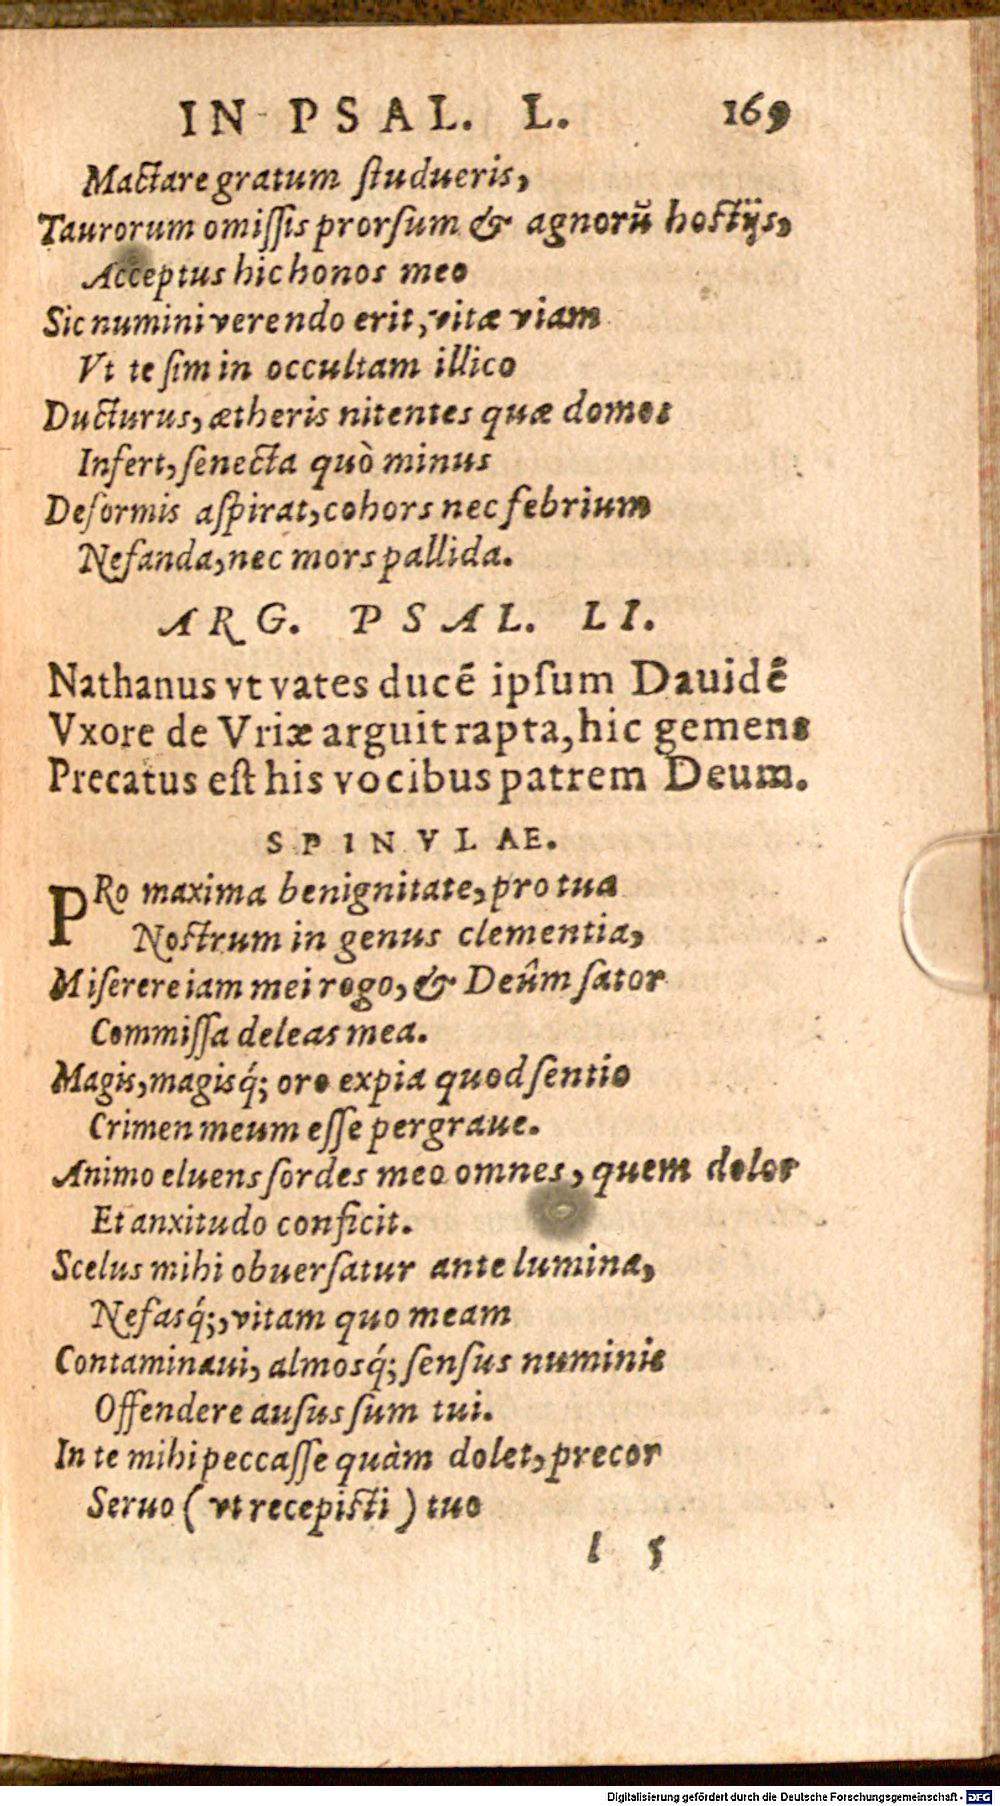 IN PSAL. L. 169
Mactare gratum ſtudueris,
Taurorum omiſſis prorſum & agnorũ hoſtijs,
Acceptus hic honos meo
Sic numini verendo erit, vitæ viam
Vt te ſim in occultam illico
Ducturus, ætheris nitentes quæ domos
Infert, ſenecta quò minus
Deformis aſpirat, cohors nec febrium
Nefanda, nec mors pallida.
ARG. PSAL. LI.
Nathanus vt vates ducẽ ipſum Dauidẽ
Vxore de Vriæ arguit rapta, hic gemens
Precatus eſt his vocibus patrem Deum.
SPINVLAE.
PRo maxima benignitate, pro tua
Noſtrum in genus clementia,
Miſerere iam mei rogo, & Deûm ſator
Commiſſa deleas mea.
Magis, magisq́; oro expia quod ſentio
Crimen meum eſſe pergraue.
Animo eluens ſordes meo omnes, quem dolor
Et anxitudo conficit.
Scelus mihi obuerſatur ante lumina,
Nefasq́;, vitam quo meam
Contaminaui, almosq́; ſenſus numinis
Offendere auſus ſum tui.
In te mihi peccaſſe quàm dolet, precor
Seruo ( vt recepiſti ) tuo
l 5
Digitalisierung gefördert durch die Deutsche Forschungsgemeinschaft - DFG